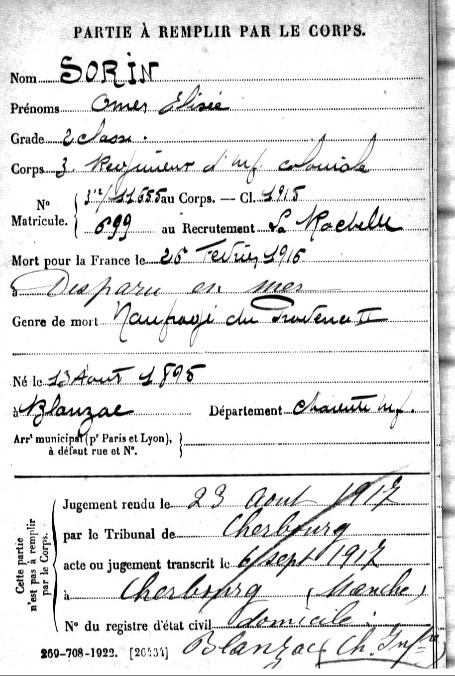 PARTIE À REMPLIR PAR LE CORPS.
Nom SORIN
Prénoms Omer Elisée
Grade 2 classe.
Corps 3 Regiment d'inf coloniale
N° Matricule. { 3e/11655 au Corps. — Cl. 1915
699 au Recrutement La Rochelle
Mort pour la France le 26 Fevrier 1916
à Disparu en mer
Genre de mort Naufragé du Provence II
Né le 13 Aout 1895
à Blanzac Département Charente inf.
Arrt municipal (pr Paris et Lyon), à défaut rue et N°. }
Cette partie n'est pas à remplir par le Corps.
Jugement rendu le 23 aout 1917
par le Tribunal de Cherbourg
acte ou jugement transcrit le 6 sept 1917
à Cherbourg (Manche)
N° du registre d'état civil domicile :
Blanzac (Ch. Infre)
269-708-1922. [26434]